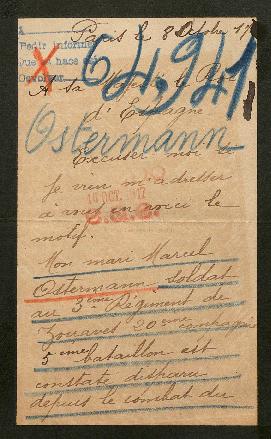 Paris le 8 Octobre 17
Pedir informe
que hace
Devolver
64,941
A sa Majesté le Roi
d'Espagne
Ostermann
Excuser moi si
Je vien m'adretter
à vous en voici le
16 OCT. 1917
motif.
Mon mari Marcel
Ostermann soldat
au 3ème Régiment de
Zouaves 20ème compagnie
5ème bataillon est
constaté disparu
depuis le combat du